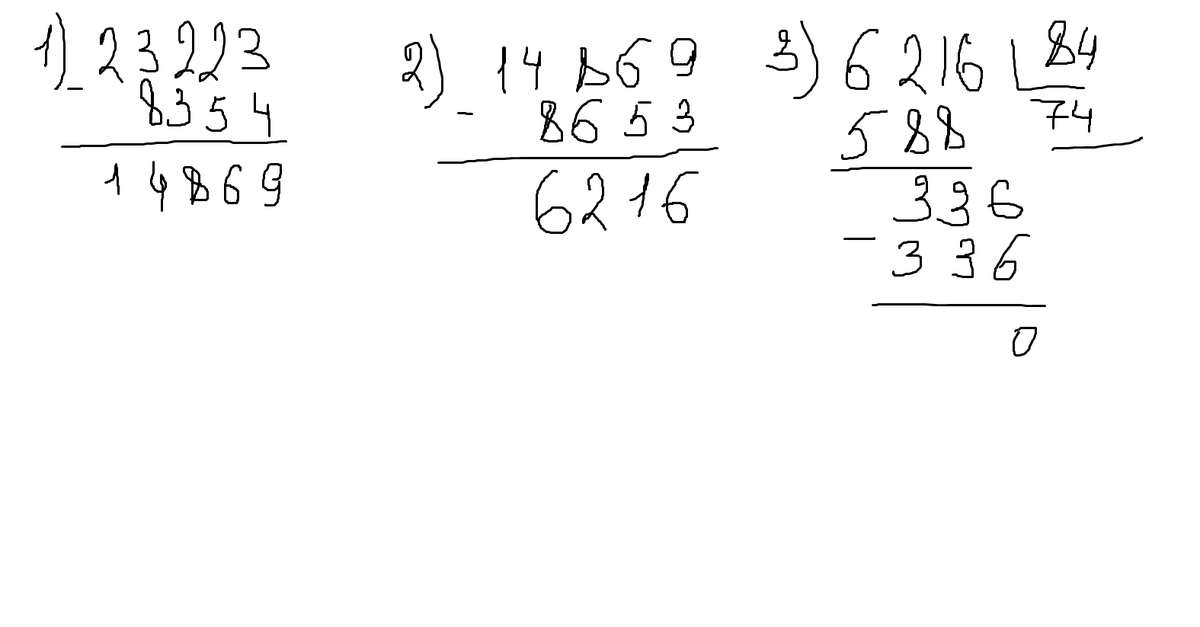 1) - 23223
8354
14869
2) - 14869
8653
6216
3) 6216 84
588 74
336
- 336
0